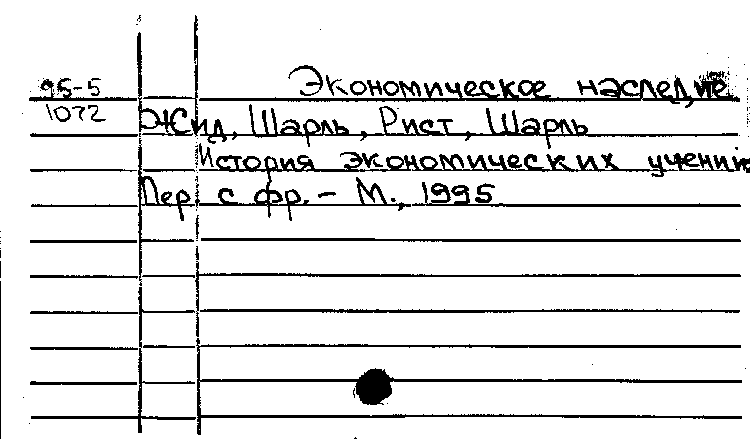 95-5 Экономическое наследие
1072 Жид, Шарль, Рист, Шарль
История экономических учений
Пер. с фр. - М., 1995